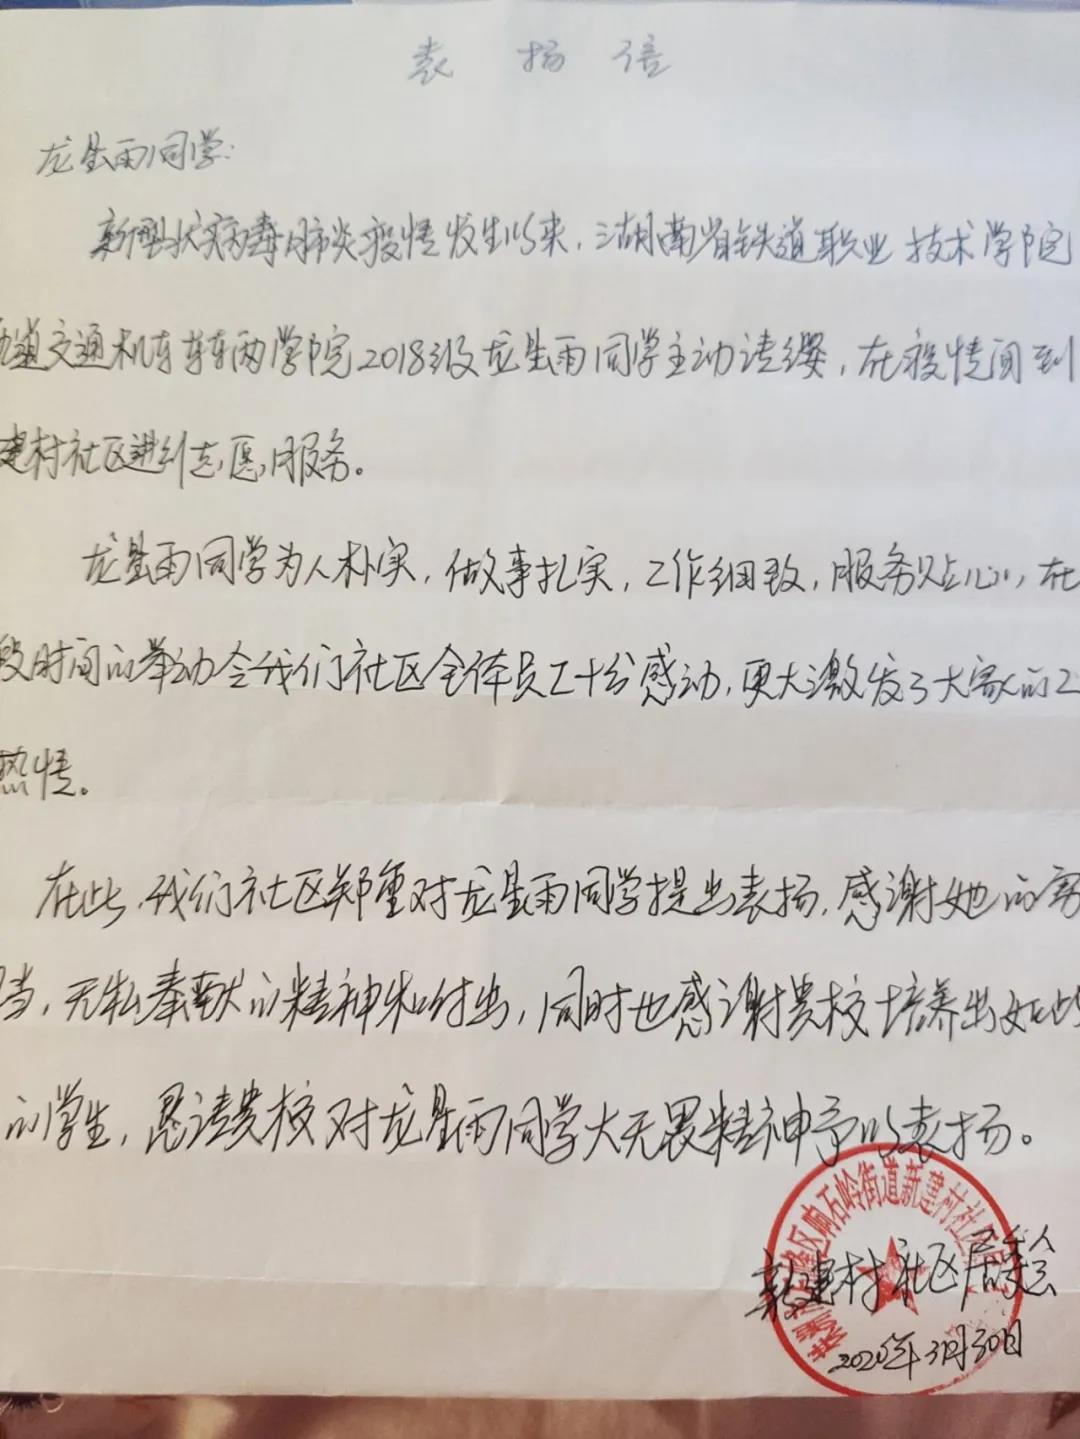 表扬信
龙星雨同学:
新型状病毒肺炎疫情发生以来,湖南省铁道职业技术学院
道交通机车车辆学院2018级龙星雨同学主动请缨,在疫情间到
建村社区进行志愿服务。
龙星雨同学为人朴实,做事扎实,工作细致,服务贴心,在
段时间的举动令我们社区全体员工十分感动,更大激发了大家的工
热情。
在此,我们社区郑重对龙星雨同学提出表扬,感谢她的勇
当,无私奉献的精神和付出,同时也感谢贵校培养出如此
的学生,恳请贵校对龙星雨同学大无畏精神予以表扬。
区响石岭街道新建村社区
新建村社区居委会
2020年3月30日